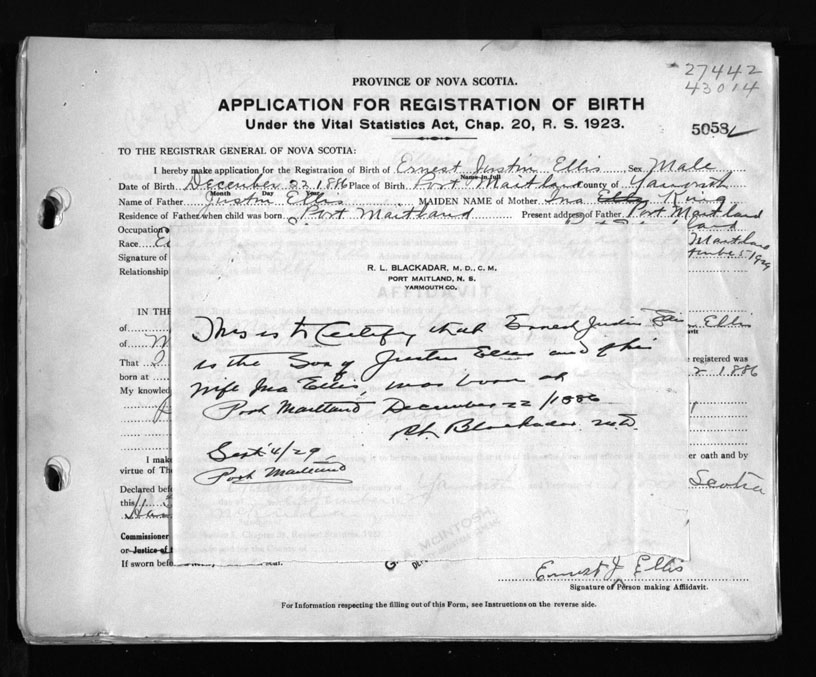 27442
43014
PROVINCE OF NOVA SCOTIA.
APPLICATION FOR REGISTRATION OF BIRTH
Under the Vital Statistics Act, Chap. 20, R. S. 1923.
5058
TO THE REGISTRAR GENERAL OF NOVA SCOTIA:
I hereby make application for the Registration of Birth of Ernest Justin Ellis Sex Male
Name in full
Date of Birth December 22 1886 Place of Birth Port Maitland County of Yarmouth
Month Day Year
Name of Father Justin Ellis MAIDEN NAME of Mother Ina Ellis King
Residence of Father when child was born Port Maitland Present address of Father Port Maitland
Occupation
Race Maitland
Signature of 5 1929
Relationship
R. L. BLACKADAR, M. D., C. M.
PORT MAITLAND, N. S.
YARMOUTH CO.
AFFIDAVIT
IN THE
This is to Certify that Ernest Justin Ellis
of Ellis
is the Son of Justin Ellis and of his
of M
That registered was
wife Ina Ellis, was born at
born at 2 1886
My knowled
Port Maitland December 22/1886
R L. Blackadar M.D.
Sept 4/29
Port Maitland
I mak er oath and by
virtue of Th
Declared bef Scotia
this
Commissioner
or Justice of
If sworn befo
G. A. McINTOSH
Ernest J Ellis
Signature of Person making Affidavit.
For Information respecting the filling out of this Form, see Instructions on the reverse side.